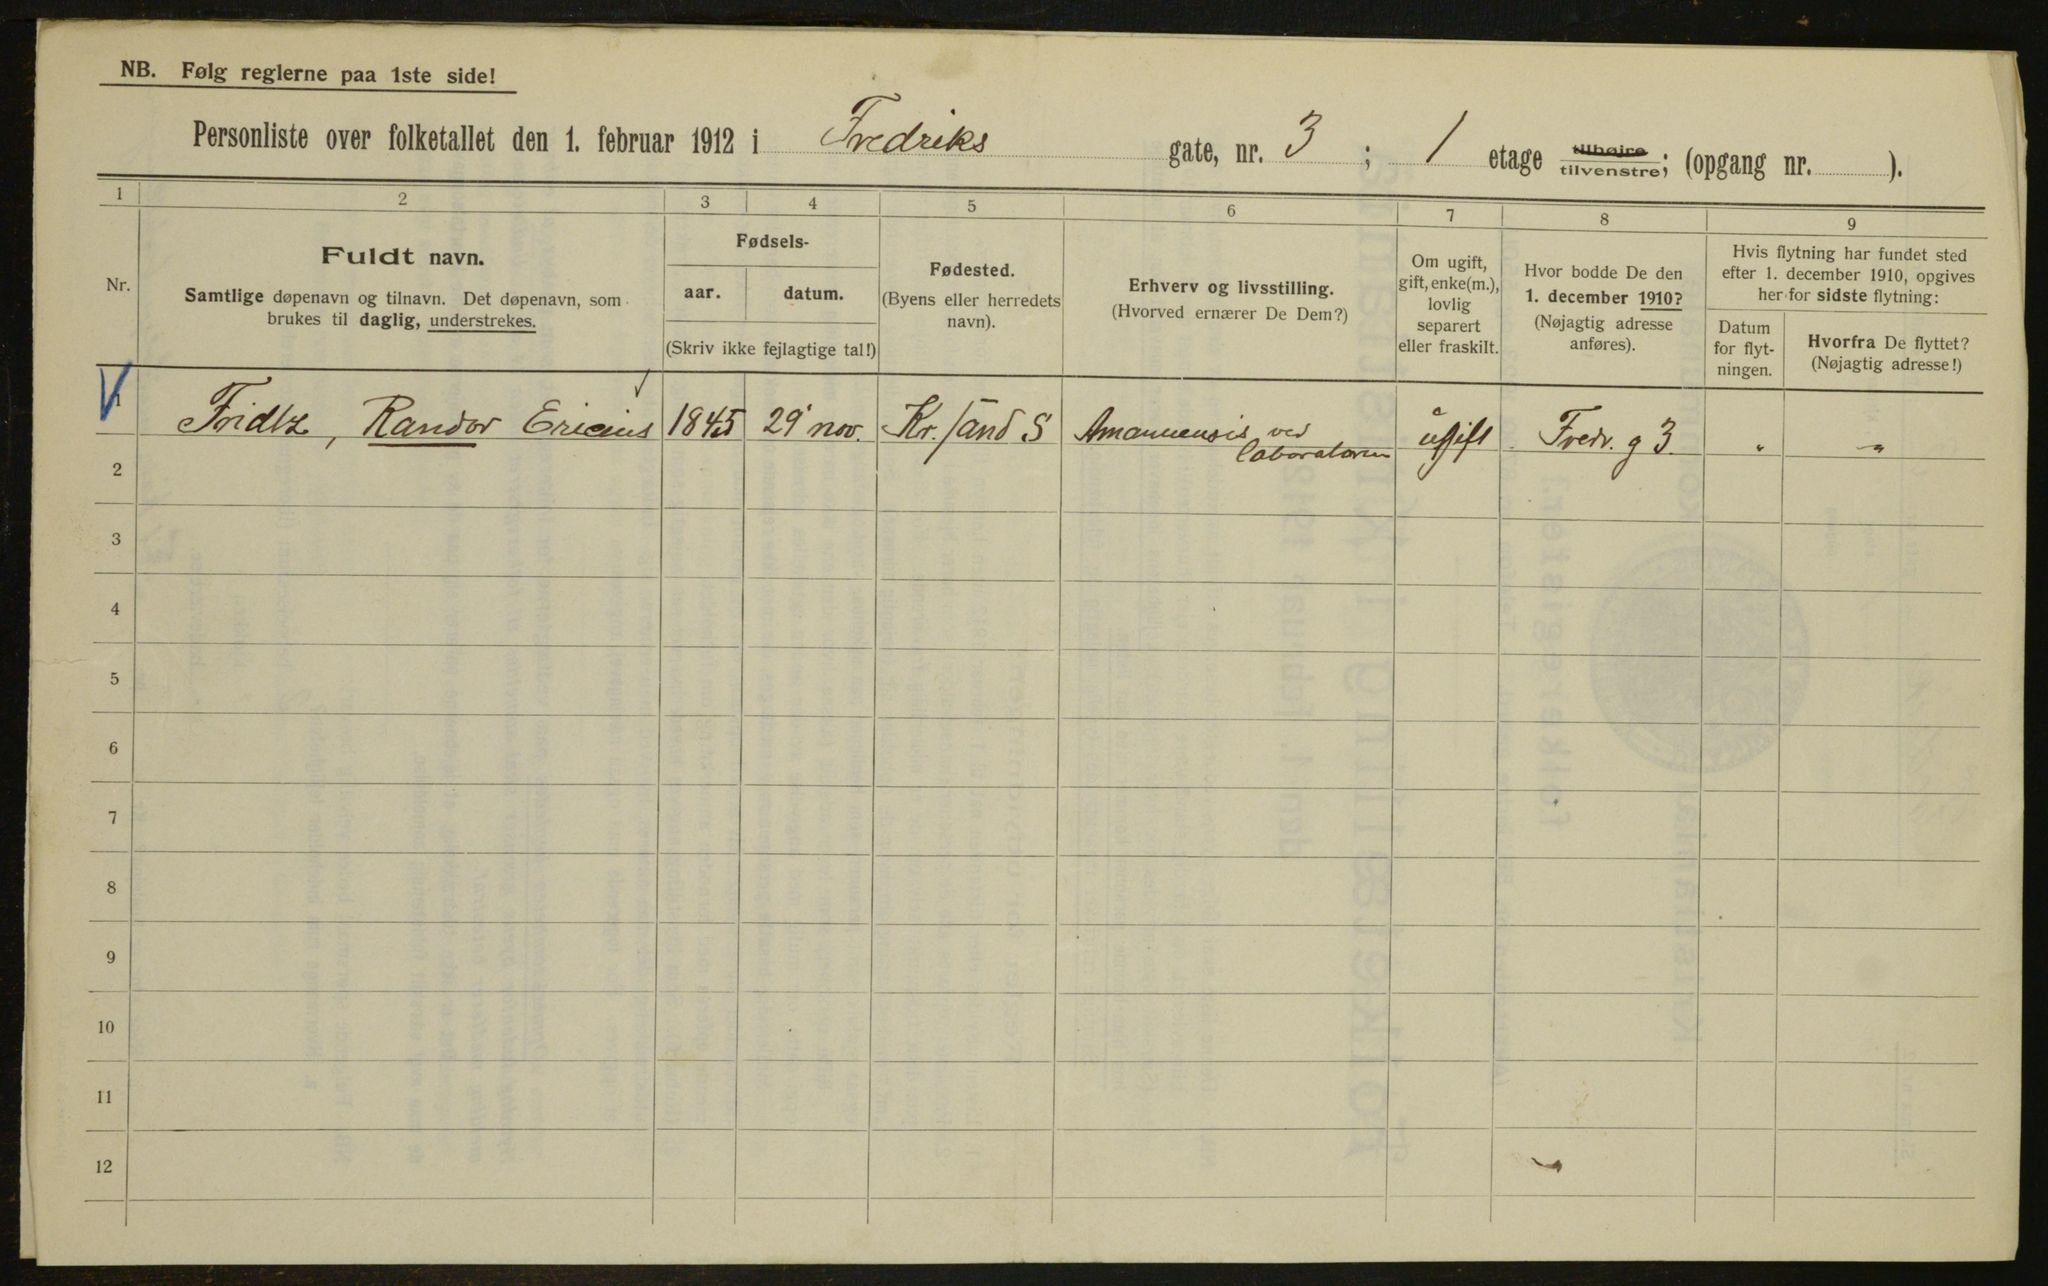 NB. Følg reglerne paa 1ste side!
Personliste over folketallet den 1. februar 1912 i Fredriks gate, nr. 3 ; 1 etage tilhøjre tilvenstre; (opgang nr. ).
1 2 3 4 5 6 7 8 9
Nr.
Fuldt navn.
Samtlige døpenavn og tilnavn. Det døpenavn, som
brukes til daglig, understrekes.
Fødsels-
aar. datum.
(Skriv ikke fejlagtige tal!)
Fødested.
(Byens eller herredets
navn).
Erhverv og livsstilling.
(Hvorved ernærer De Dem?)
Om ugift,
gift, enke(m.),
lovlig
separert
eller fraskilt.
Hvor bodde De den
1. december 1910?
(Nøjagtig adresse
anføres).
Hvis flytning har fundet sted
efter 1. december 1910, opgives
her for sidste flytning:
Datum
for flyt-
ningen.
Hvorfra De flyttet?
(Nøjagtig adresse!)
1 Fridtz, Randor Ericius 1845 29 nov. Kr.sand S Amanuensis ved ugift Fredr. g 3. " "
laboratoriu
2
3
4
5
6
7
8
9
10
11
12